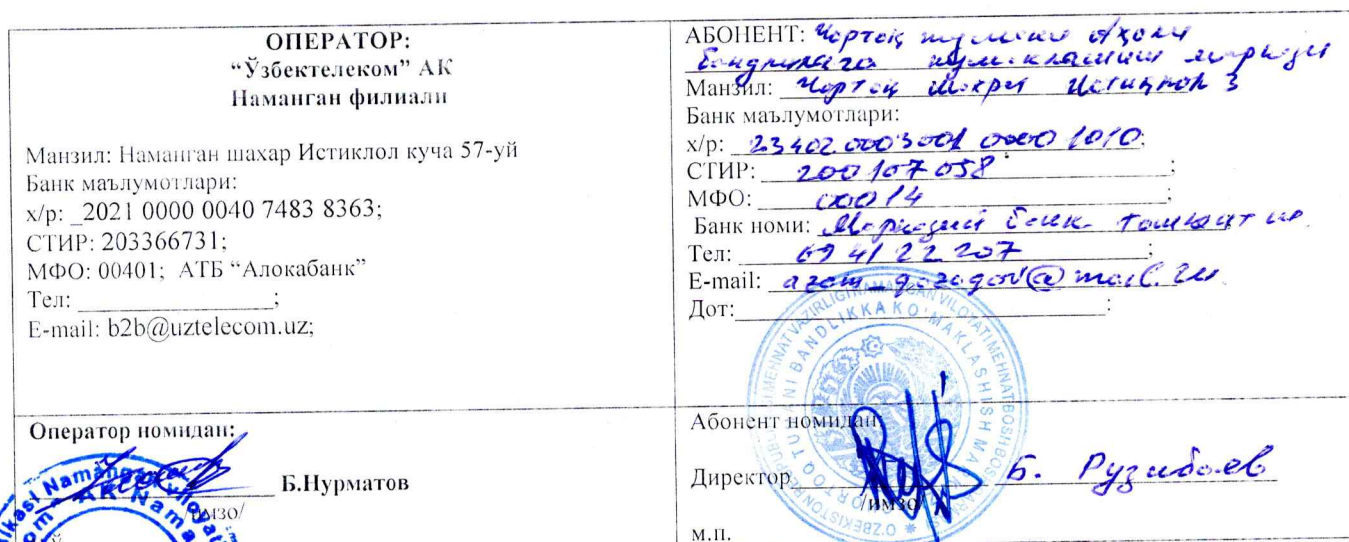 ОПЕРАТОР:
“Ўзбектелеком” АК
Наманган филиали
Манзил: Наманган шахар Истиклол куча 57-уй
Банк маълумотлари:
х/р: _2021 0000 0040 7483 8363;
СТИР: 203366731;
МФО: 00401; АТБ “Алокабанк”
Тел: ;
E-mail: b2b@uztelecom.uz;
Оператор номидан:
Б.Нурматов
/имзо/
АБОНЕНТ: Чортоқ тумани Аҳоли
бандлигига кумаклашиш маркази
Манзил: Чортоқ шаҳри Истиқлол 3
Банк маълумотлари:
х/р: 23402 0003001 0000 1010;
СТИР: 200 107 058 ;
МФО: 00014 ;
Банк номи: Марказий банк Тошкент ш.
Тел: 69 41 22 207 ;
E-mail:
Дот: ;
Абонент номидан:
Директор Б. Рузибаев
/имзо/
м.п.